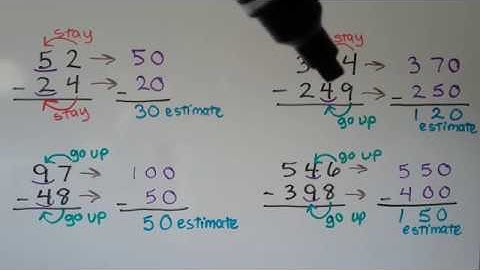 stay
52 → 50
- 24 → - 20
stay
30 estimate
stay
→ 370
- 249 → - 250
go up
120
estimate
go up
97 → 100
- 48 → - 50
go up
50 estimate
go up
546 → 550
- 398 → - 400
go up
150
estimate